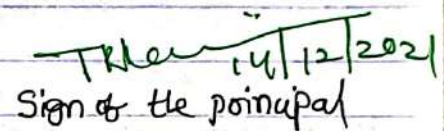 14/12/2021
Sign of the poincipal